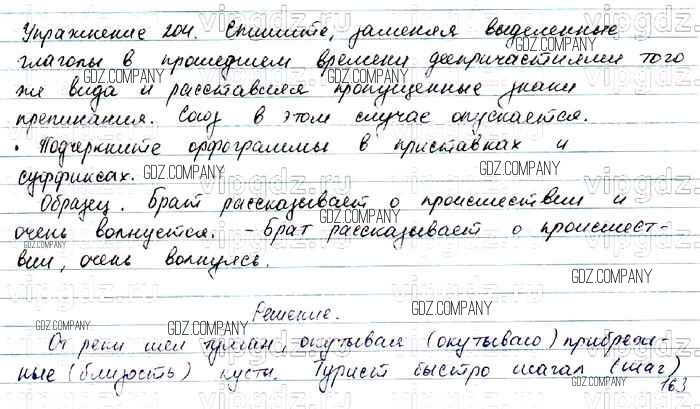 Упражнение 204. Спишите, заменяя выделенные
глаголы в прошедшем времени деепричастиями того
же вида и расставляя пропущенные знаки
препинания. Союз в этом случае опускается.
• Подчеркните орфограммы в приставках и
суффиксах.
Образец. Брат рассказывает о происшествии и
очень волнуется. - Брат рассказывает о происшест-
вии, очень волнуясь.
Решение.
От реки шел туман, окутывая (окутываю) прибреж-
ные (близость) кусты. Турист быстро шагал (шаг)
163
GDZ.COMPANY
vipgdz.ru